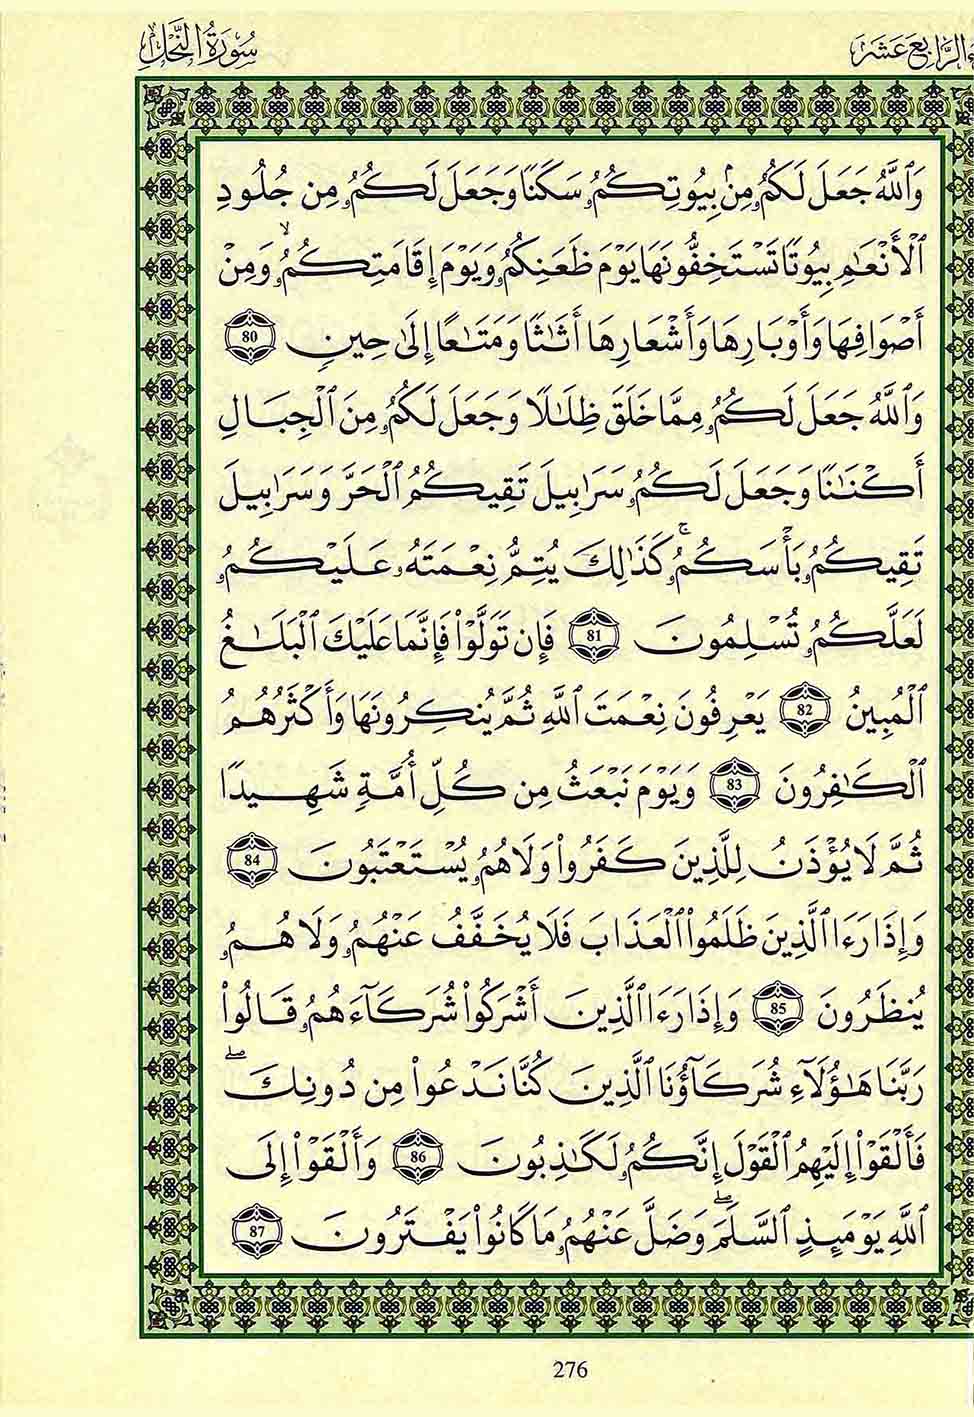 ءُالرَّابِعَ عَشَرَ
سُورَةُ النَّحْلِ
وَٱللَّهُ جَعَلَ لَكُمُۥ مِنۢ بِيُوتِكُمُۥ سَكَنًا وَجَعَلَ لَكُمُۥ مِن جُلُودِ
ٱلْأَنْعَٰمِ بِيُوتًا تَسْتَخِفُّونَهَا يَوْمَ ظَعَنِكُمُۥ وَيَوْمَ إِقَامَتِكُمُۥ ۙ وَمِنْ
أَصْوَافِهَا وَأَوْبَارِهَا وَأَشْعَارِهَا أَثَٰثًا وَمَتَٰعًا إِلَىٰ حِينٍ 80
وَٱللَّهُ جَعَلَ لَكُمُۥ مِمَّا خَلَقَ ظِلَٰلًا وَجَعَلَ لَكُمُۥ مِنَ ٱلْجِبَالِ
أَكْنَٰنًا وَجَعَلَ لَكُمُۥ سَرَٰبِيلَ تَقِيكُمُ ٱلْحَرَّ وَسَرَٰبِيلَ
تَقِيكُمُۥ بَأْسَكُمُۥ ۚ كَذَٰلِكَ يُتِمُّ نِعْمَتَهُۥ عَلَيْكُمُۥ
لَعَلَّكُمُۥ تُسْلِمُونَ 81 فَإِن تَوَلَّوْا۟ فَإِنَّمَا عَلَيْكَ ٱلْبَلَٰغُ
ٱلْمُبِينُ 82 يَعْرِفُونَ نِعْمَتَ ٱللَّهِ ثُمَّ يُنكِرُونَهَا وَأَكْثَرُهُمُ
ٱلْكَٰفِرُونَ 83 وَيَوْمَ نَبْعَثُ مِن كُلِّ أُمَّةٍ شَهِيدًا
ثُمَّ لَا يُؤْذَنُ لِلَّذِينَ كَفَرُوا۟ وَلَا هُمُۥ يُسْتَعْتَبُونَ 84
وَإِذَا رَءَا ٱلَّذِينَ ظَلَمُوا۟ ٱلْعَذَابَ فَلَا يُخَفَّفُ عَنْهُمُۥ وَلَا هُمُۥ
يُنظَرُونَ 85 وَإِذَا رَءَا ٱلَّذِينَ أَشْرَكُوا۟ شُرَكَآءَهُمُۥ قَالُوا۟
رَبَّنَا هَٰٓؤُلَآءِ شُرَكَآؤُنَا ٱلَّذِينَ كُنَّا نَدْعُوا۟ مِن دُونِكَ ۖ
فَأَلْقَوْا۟ إِلَيْهِمُ ٱلْقَوْلَ إِنَّكُمُۥ لَكَٰذِبُونَ 86 وَأَلْقَوْا۟ إِلَى
ٱللَّهِ يَوْمَئِذٍ ٱلسَّلَمَ ۖ وَضَلَّ عَنْهُمُۥ مَا كَانُوا۟ يَفْتَرُونَ 87
276